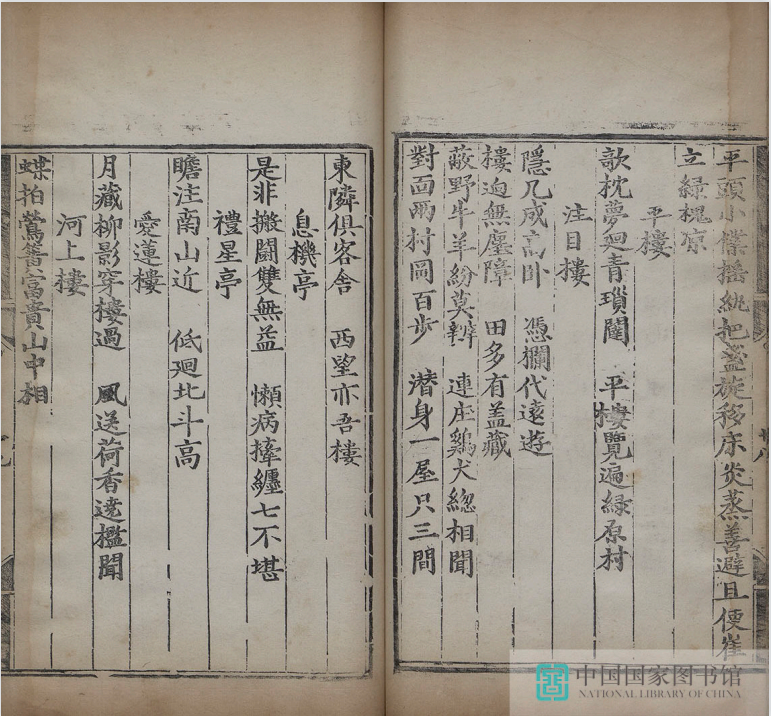 平頭小僕搖紈把盞旋移床炎蒸善避且便崔
立緑槐凉
平樓
歌枕夢廻青瑣闥 平樓覽遍緑原村
注目樓
隱几成高卧 憑欄代遠遊
樓迥無塵障 田多有盖藏
蔽野牛羊紛莫辨 連庄鷄犬總相聞
對面兩村同百步 潜身一屋只三間
東隣俱客舍 西望亦吾樓
息機亭
是非搬鬪雙無益 懶病纏七不堪
禮星亭
瞻注南山近 低廻北斗高
愛蓮樓
月藏柳影穿樓過 風送荷香遶檻聞
河上樓
蝶拍鶯簧富貴山中相
中国国家图书馆
NATIONAL LIBRARY OF CHINA